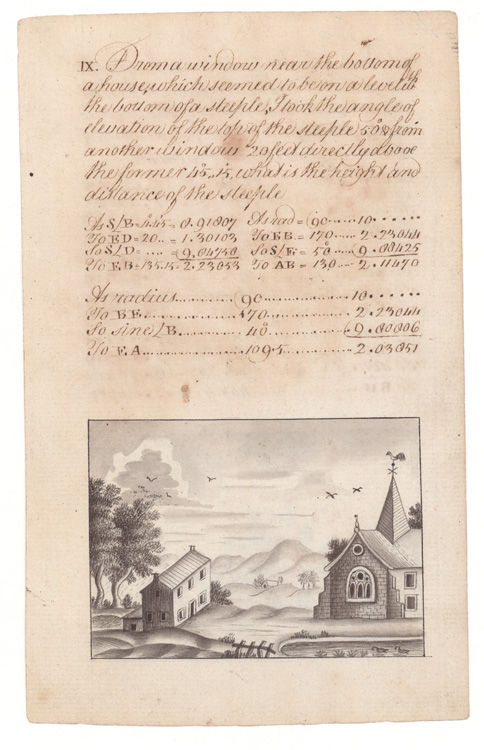 IX. From a window near the bottom of
a house, which seemed to be on a level wth
the bottom of a steeple, I took the angle of
elevation of the top of the steeple 50° & from
another window 20 feet directly above
the former 45°,,15, what is the height and
distance of the steeple
As S/B = 4.45 = 8.91807 As rad = (90 ...... 10. ......
To ED = 20 .. = 1.30103 To EB = 170 ...... 2.23044
So S/D = .... = (9.84750 So S/E = 50 ...... (9.88425
To EB = 135.15 = 2.23053 To AB = 130 ...... 2.11470
As radius ............ (90 ............ 10. ......
To BE ............ 170 ............ 2.23044
So sine/B ............ 40 ............ (9.80806
To EA ............ 109.5 ............ 2.03851